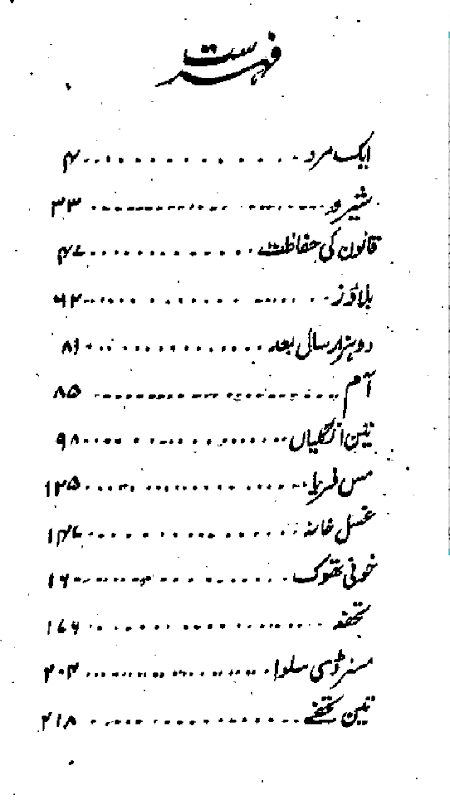 فہرست
ایک مرد ۴
شیرو ۳۳
قانون کی حفاظت ۴۷
بلاؤز ۶۲
دو ہزار سال بعد ۸۱
آم ۸۵
تین انگلیاں ۹۸
مس فریا ۱۲۵
غسل خانہ ۱۴۷
خونی تھوک ۱۶۰
تحفہ ۱۷۶
مسز ڈی سلوا ۲۰۲
تین تحفے ۲۱۸